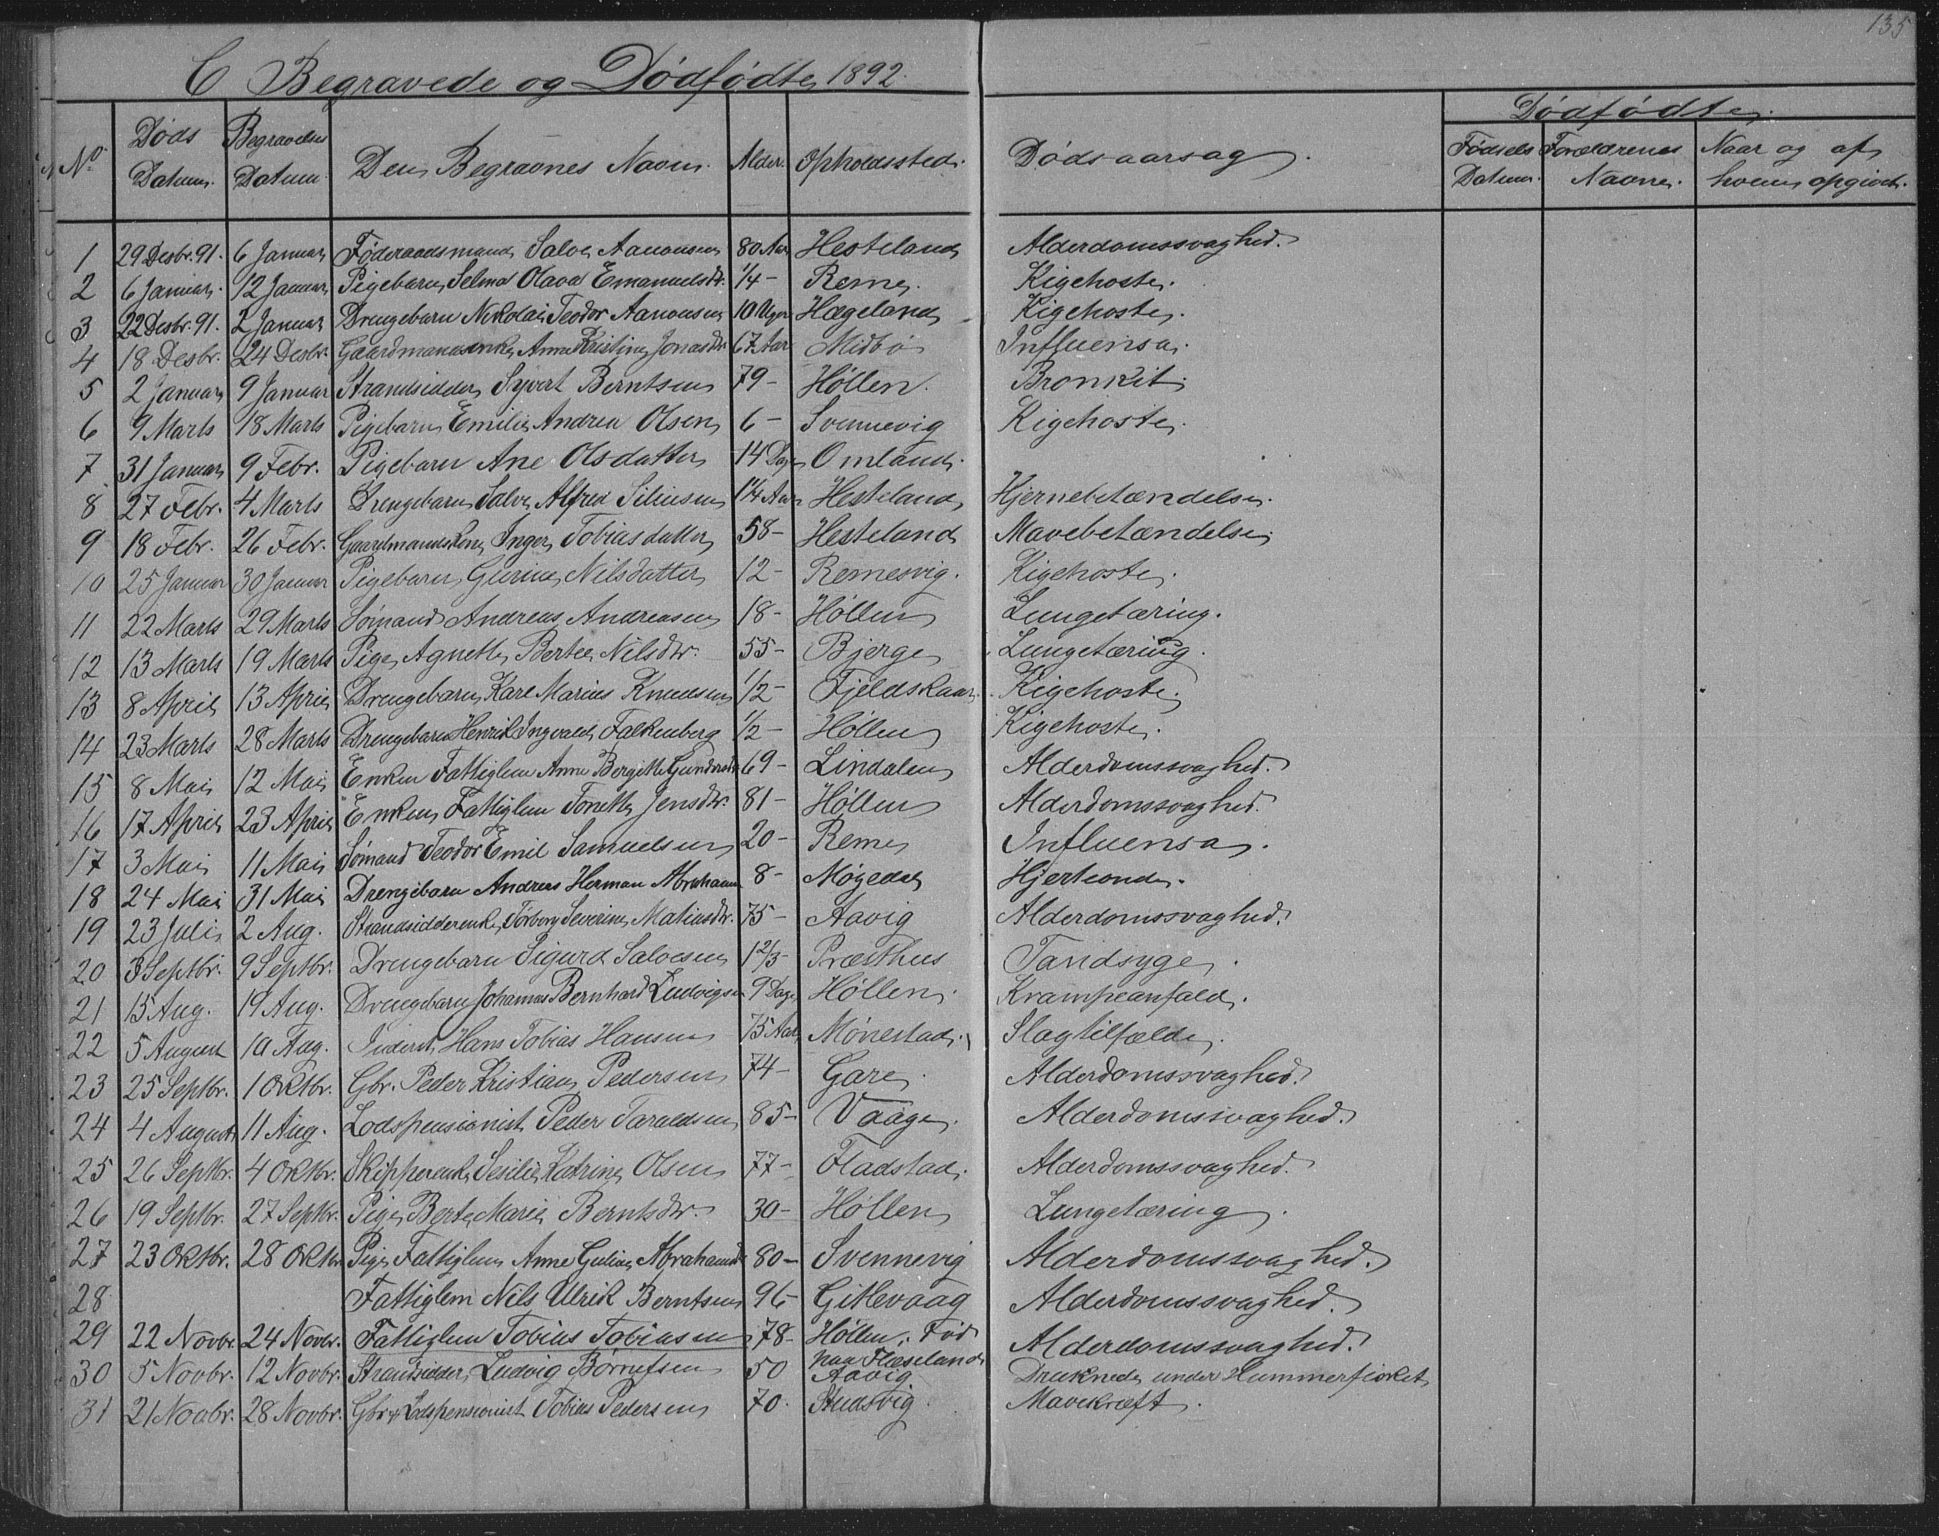 135
C Begravede og Dødfødte 1892.
No. Døds Datum. Begravelses Datum. Den Begravnes Navn. Alder. Opholdssted. Dødsaarsag. Dødfødte.
Fødsels Datum. Forældrenes Navne. Naar og af hvem opgivet.
1 29 Desbr. 91. 6 Januar Føderaadsmand Salve Aanonsen 80 Aar Hesteland Alderdomssvaghed.
2 6 Januar. 12 Januar Pigebarn Selma Olava Emanuelsdtr. 1/4 - Reme. Kigehoste.
3 22 Desbr. 91. 2 Januar Drengebarn Nikolai Teodor Aanonsen 10 Uger Hægeland Kigehoste.
4 18 Desbr. 24 Desbr. Gaardmandsenke Anne Kristine Jonasdtr. 67 Aar Midbø Influensa.
5 2 Januar 9 Januar Strandsidder Syvert Berntsen 79 - Høllen. Bronkit.
6 9 Marts 18 Marts Pigebarn Emilie Andrea Olsen 6 - Svennevig Kigehoste.
7 31 Januar 9 Febr. Pigebarn Ane Olsdatter 14 Dage Omland.
8 27 Febr. 4 Marts Drengebarn Salve Alfred Siliusen 1 1/4 Aar Hesteland Hjernebetændelse.
9 18 Febr. 26 Febr. Gaardmandskone Inger Tobiasdatter 58 - Hesteland Mavebetændelse
10 25 Januar 30 Januar Pigebarn Gurine Nilsdatter 12 - Remesvig. Kigehoste.
11 22 Marts 29 Marts Sømand Andreas Andreasen 18 - Høllen Lungetæring.
12 13 Marts 19 Marts Pige Agnette Berte Nilsdtr. 55 - Bjerge Lungetæring.
13 8 April 13 April Drengebarn Kare Marius Knudsen 1/2 - Fjeldskaar. Kigehoste.
14 23 Marts 28 Marts Drengebarn Henrik Ingvald Falkenberg 1/2 - Høllen Kigehoste.
15 8 Mai 12 Mai Enken Fattiglem Anne Bergitte Gundersdtr 69 - Lindalen Alderdomssvaghed.
16 17 April 23 April Enken Fattiglem Tonette Jensdtr. 81 - Høllen Alderdomssvaghed.
17 3 Mai 11 Mai Sømand Teodor Emil Samuelsen 20 - Reme Influensa.
18 24 Mai 31 Mai Drengebarn Andreas Herman Abrahamsen 8 - Møgedal Hjerteonde.
19 23 Juli 2 Aug. Strandsidderenke Torborg Severine Matiasdtr. 75 - Aavig Alderdomssvaghed.
20 3 Septbr. 9 Septbr. Drengebarn Sigurd Salvesen 1 2/3 - Præsthus Tandsyge.
21 15 Aug. 19 Aug. Drengebarn Johannes Bernhard Ludvigsen 9 Dage Høllen. Krampeanfald.
22 5 August 10 Aug. Inderst Hans Tobias Hansen 75 Aar Mønestad. Slagtilfælde.
23 25 Septbr. 1 Oktbr. Gbr. Peder Kristian Pedersen 74 - Gare. Alderdomssvaghed.
24 4 August 11 Aug. Lodspensionist Peder Taraldsen 85 - Vaage. Alderdomssvaghed.
25 26 Septbr. 4 Oktbr. Skipperenke Sesilie Katrine Olsen 77 - Fladstad. Alderdomssvaghed.
26 19 Septbr. 27 Septbr. Pige Berte Marie Berntsdtr. 30 - Høllen Lungetæring.
27 23 Oktbr. 28 Oktbr Pige Fattiglem Anne Guline Abrahamsdtr 80 - Svennevig Alderdomssvaghed.
28 Fattiglem Nils Ulrik Berntsen 96 - Gitlevaag Alderdomssvaghed.
29 22 Novbr. 24 Novbr. Fattiglem Tobias Tobiasen 78 - Høllen. Fød paa Flæseland Alderdomssvaghed.
30 5 Novbr. 12 Novbr. Strandsidder Ludvig Børnefsen 50 Aavig Druknede under Hummerfisket
31 21 Novbr. 28 Novbr. Gbr & Lodspensionist Tobias Pedersen 70. Studsvig. Mavekræft.